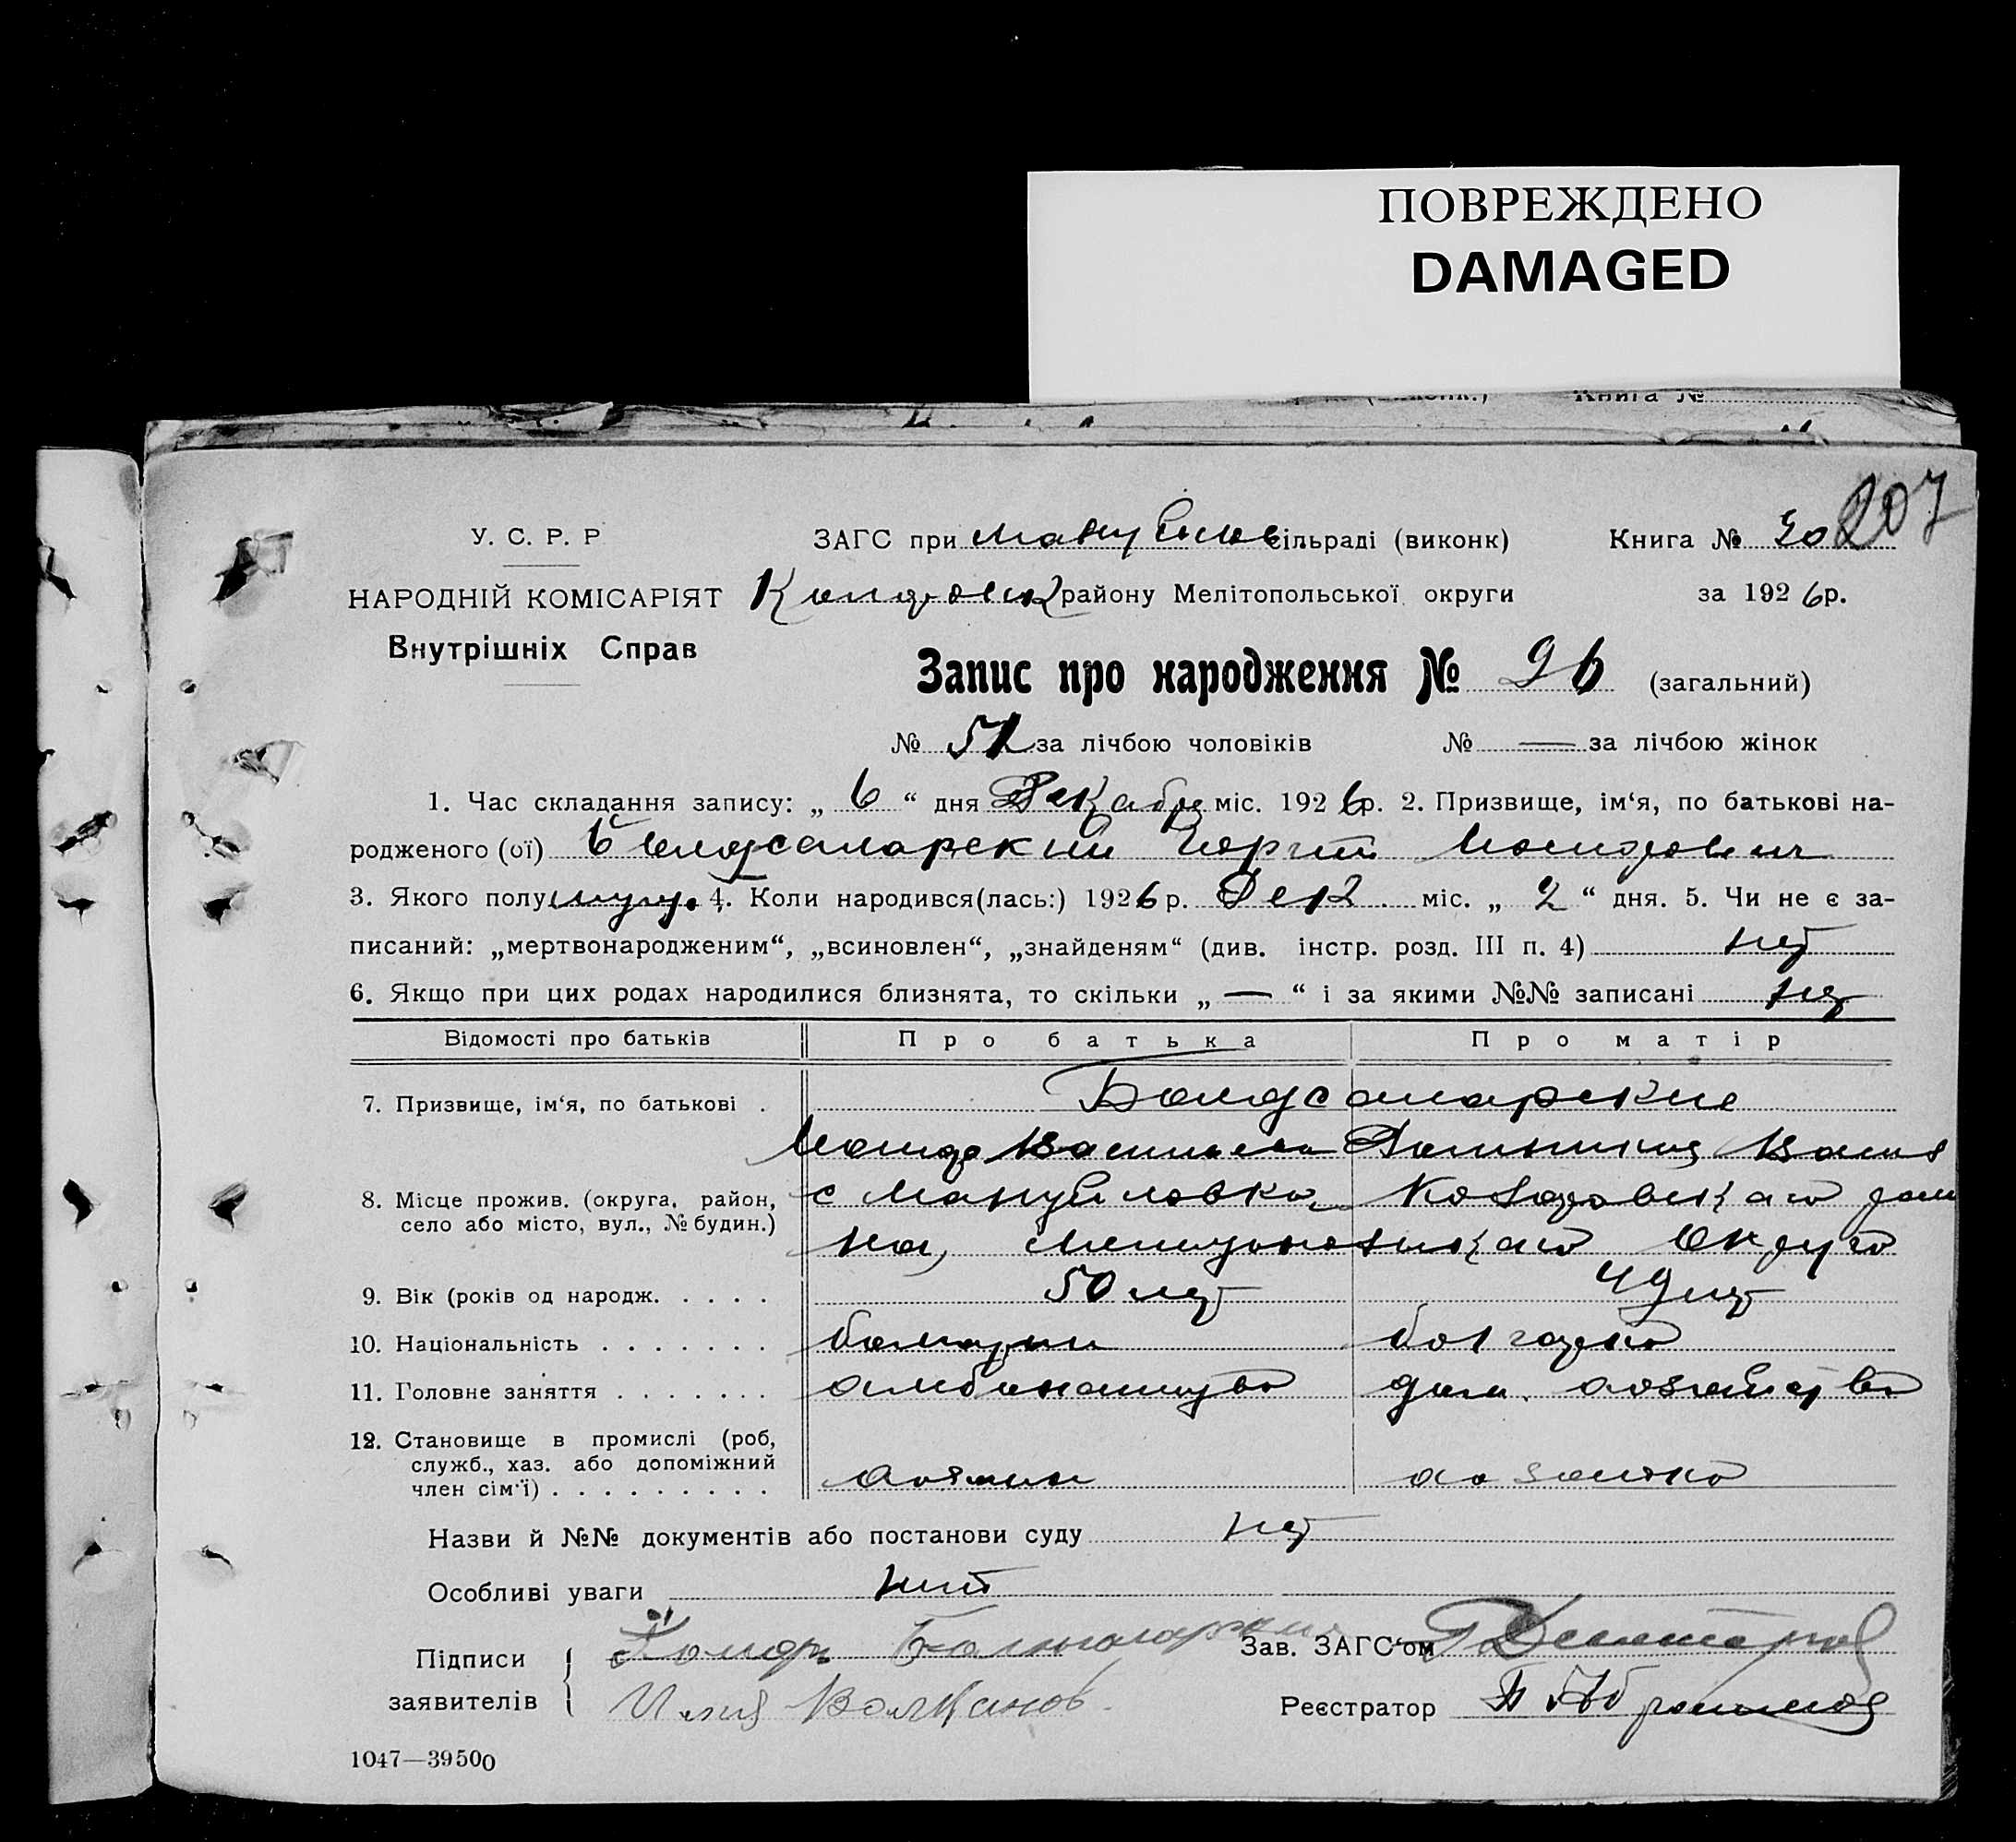 ПОВРЕЖДЕНО
DAMAGED
Книга №
207
У. С. Р. Р
ЗАГС при сільраді (виконк)
Книга №
НАРОДНІЙ КОМІСАРІЯТ
району Мелітопольської округи
за 1926р.
Внутрішніх Справ
Запис про народження № 96 (загальний)
№ 51 за лічбою чоловіків № — за лічбою жінок
1. Час складання запису: „ 6 “ дня Декабря міс. 1926р. 2. Призвище, ім‘я, по батькові на-
родженого (ої)
3. Якого полу муж. 4. Коли народився(лась:) 1926р. Дек. міс. „ 2 “ дня. 5. Чи не є за-
писаний: „мертвонародженим“, „всиновлен“, „знайденям“ (див. інстр. розд. III п. 4) нет
6. Якщо при цих родах народилися близнята, то скільки „ — “ і за якими №№ записані нет
Відомості про батьків Про батька Про матір
7. Призвище, ім‘я, по батькові .
8. Місце прожив. (округа, район, с Мануйловка
село або місто, вул., № будин.)
на, Округа
9. Вік (років од народж. . . . . 50 лет 49 лет
10. Національність . . . . . . . болгарин болгарка
11. Головне заняття . . . . . . . дом. хозяйство
12. Становище в промислі (роб,
служб., хаз. або допоміжний
член сім‘ї) . . . . . . . . . хозяин хозяйка
Назви й №№ документів або постанови суду нет
Особливі уваги нет
Підписи Зав. ЗАГС‘ом
заявителів Илия Волканов Реєстратор
1047—39500